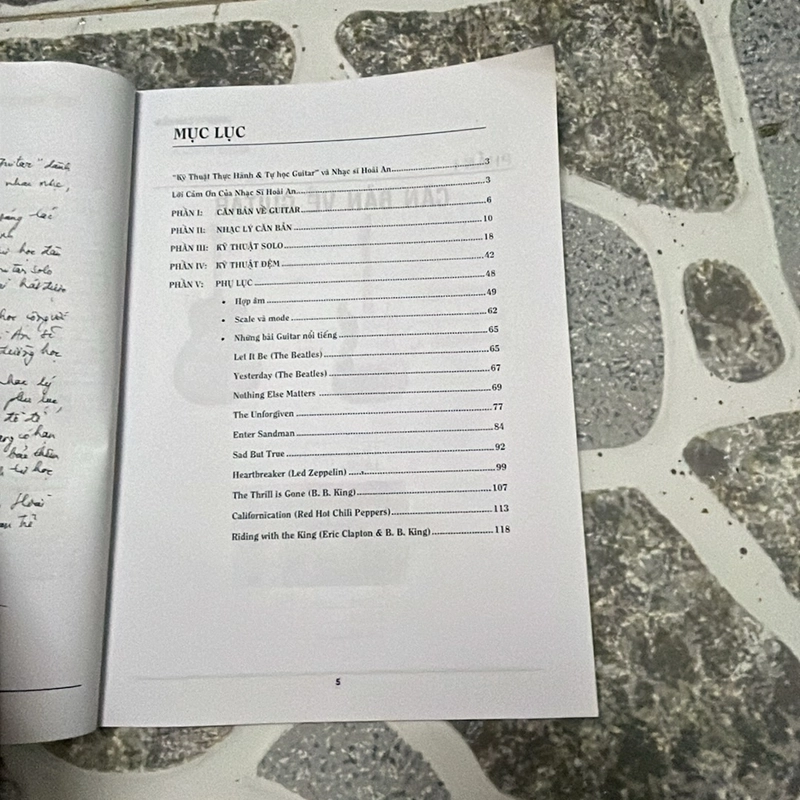 Guitar" dành
nhạc,
học đàn
solo
học
học lý
phụ lục
có hạn
tự học
Hoài
MỤC LỤC
"Kỹ Thuật Thực Hành & Tự học Guitar" và Nhạc sĩ Hoài An 3
Lời Cảm Ơn Của Nhạc Sĩ Hoài An 3
PHẦN I: CĂN BẢN VỀ GUITAR 6
PHẦN II: NHẠC LÝ CĂN BẢN 10
PHẦN III: KỸ THUẬT SOLO 18
PHẦN IV: KỸ THUẬT ĐỆM 42
PHẦN V: PHỤ LỤC 48
• Hợp âm 49
• Scale và mode 62
• Những bài Guitar nổi tiếng 65
Let It Be (The Beatles) 65
Yesterday (The Beatles) 67
Nothing Else Matters 69
The Unforgiven 77
Enter Sandman 84
Sad But True 92
Heartbreaker (Led Zeppelin) 99
The Thrill is Gone (B. B. King) 107
Californication (Red Hot Chili Peppers) 113
Riding with the King (Eric Clapton & B. B. King) 118
5